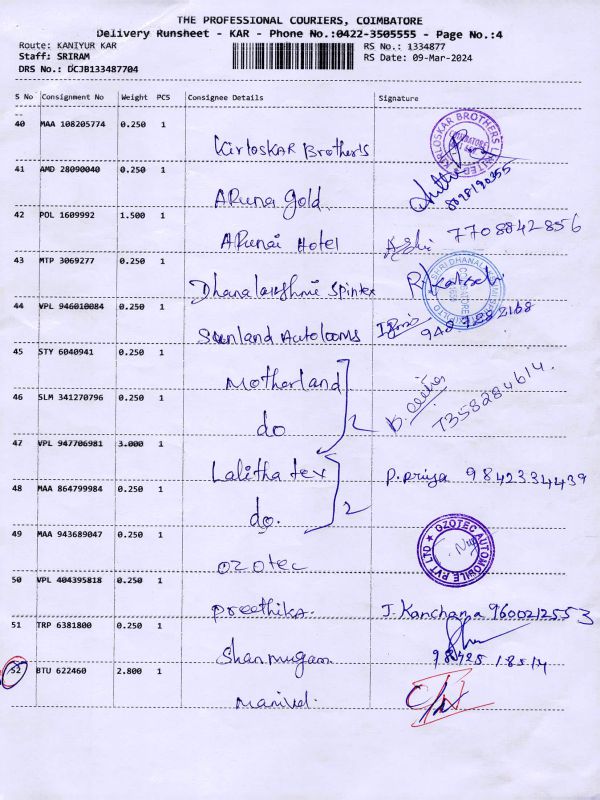 THE PROFESSIONAL COURIERS, COIMBATORE
Delivery Runsheet - KAR - Phone No.:0422-3505555 - Page No.:4
Route: KANIYUR KAR
RS No.: 1334877
Staff: SRIRAM
RS Date: 09-Mar-2024
DRS No.: DCJB133487704
S No Consignment No Weight PCS Consignee Details Signature
40 MAA 108205774 0.250 1
Kirloskar Brothers
KIRLOSKAR BROTHERS LIMITED
COIMBATORE
41 AMD 28090040 0.250 1
Aruna Gold
8098190355
42 POL 1609992 1.500 1
Arunai Hotel
7708842856
43 MTP 3069277 0.250 1
Dhanalakshmi Spintex
44 VPL 946010084 0.250 1
Sunland Autolooms
45 STY 6040941 0.250 1
Motherland
46 SLM 341270796 0.250 1
do
2
7358284614.
47 VPL 947706981 3.000 1
Lalitha tex
P. Priya 9842334439
48 MAA 864799984 0.250 1
do.
2
49 MAA 943689047 0.250 1
ozotec
OZOTEC AUTOMOBILE PVT LTD
50 VPL 404395818 0.250 1
Preethika.
J. Kanchana 9600212553
51 TRP 6381800 0.250 1
Shanmugam
52 BTU 622460 2.800 1